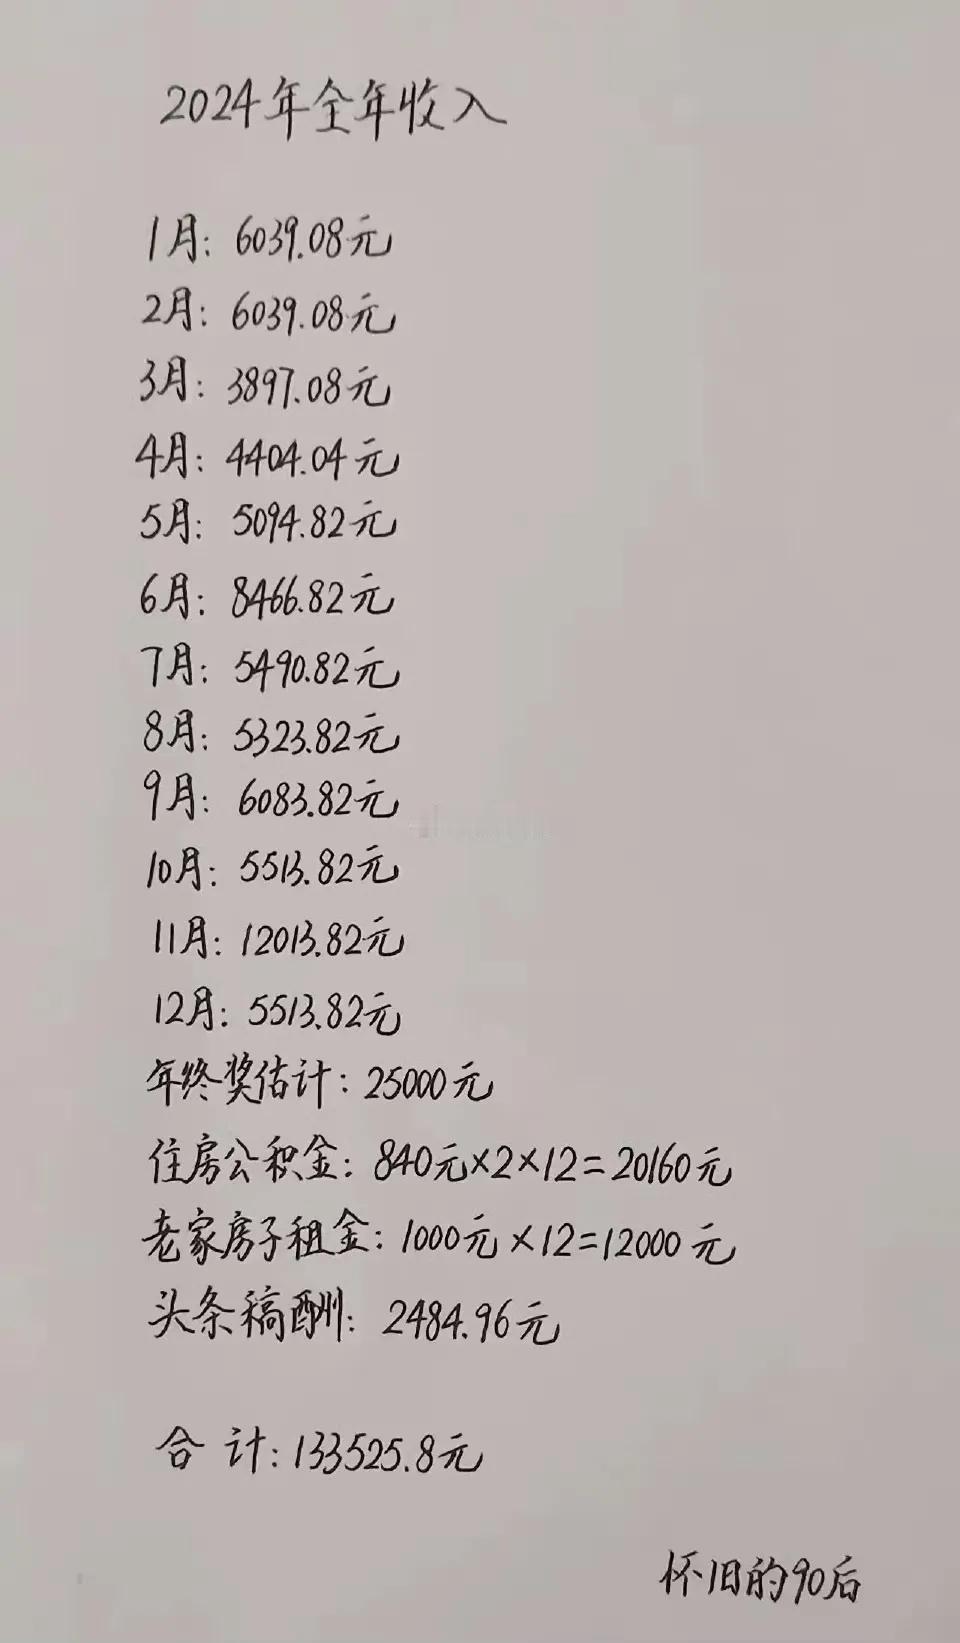 2024年全年收入
1月: 6039.08元
2月: 6039.08元
3月: 3897.08元
4月: 4404.04元
5月: 5094.82元
6月: 8466.82元
7月: 5490.82元
8月: 5323.82元
9月: 6083.82元
10月: 5513.82元
11月: 12013.82元
12月: 5513.82元
年终奖估计: 25000元
住房公积金: 840元×2×12=20160元
老家房子租金: 1000元×12=12000元
头条稿酬: 2484.96元
合计: 133525.8元
怀旧的90后